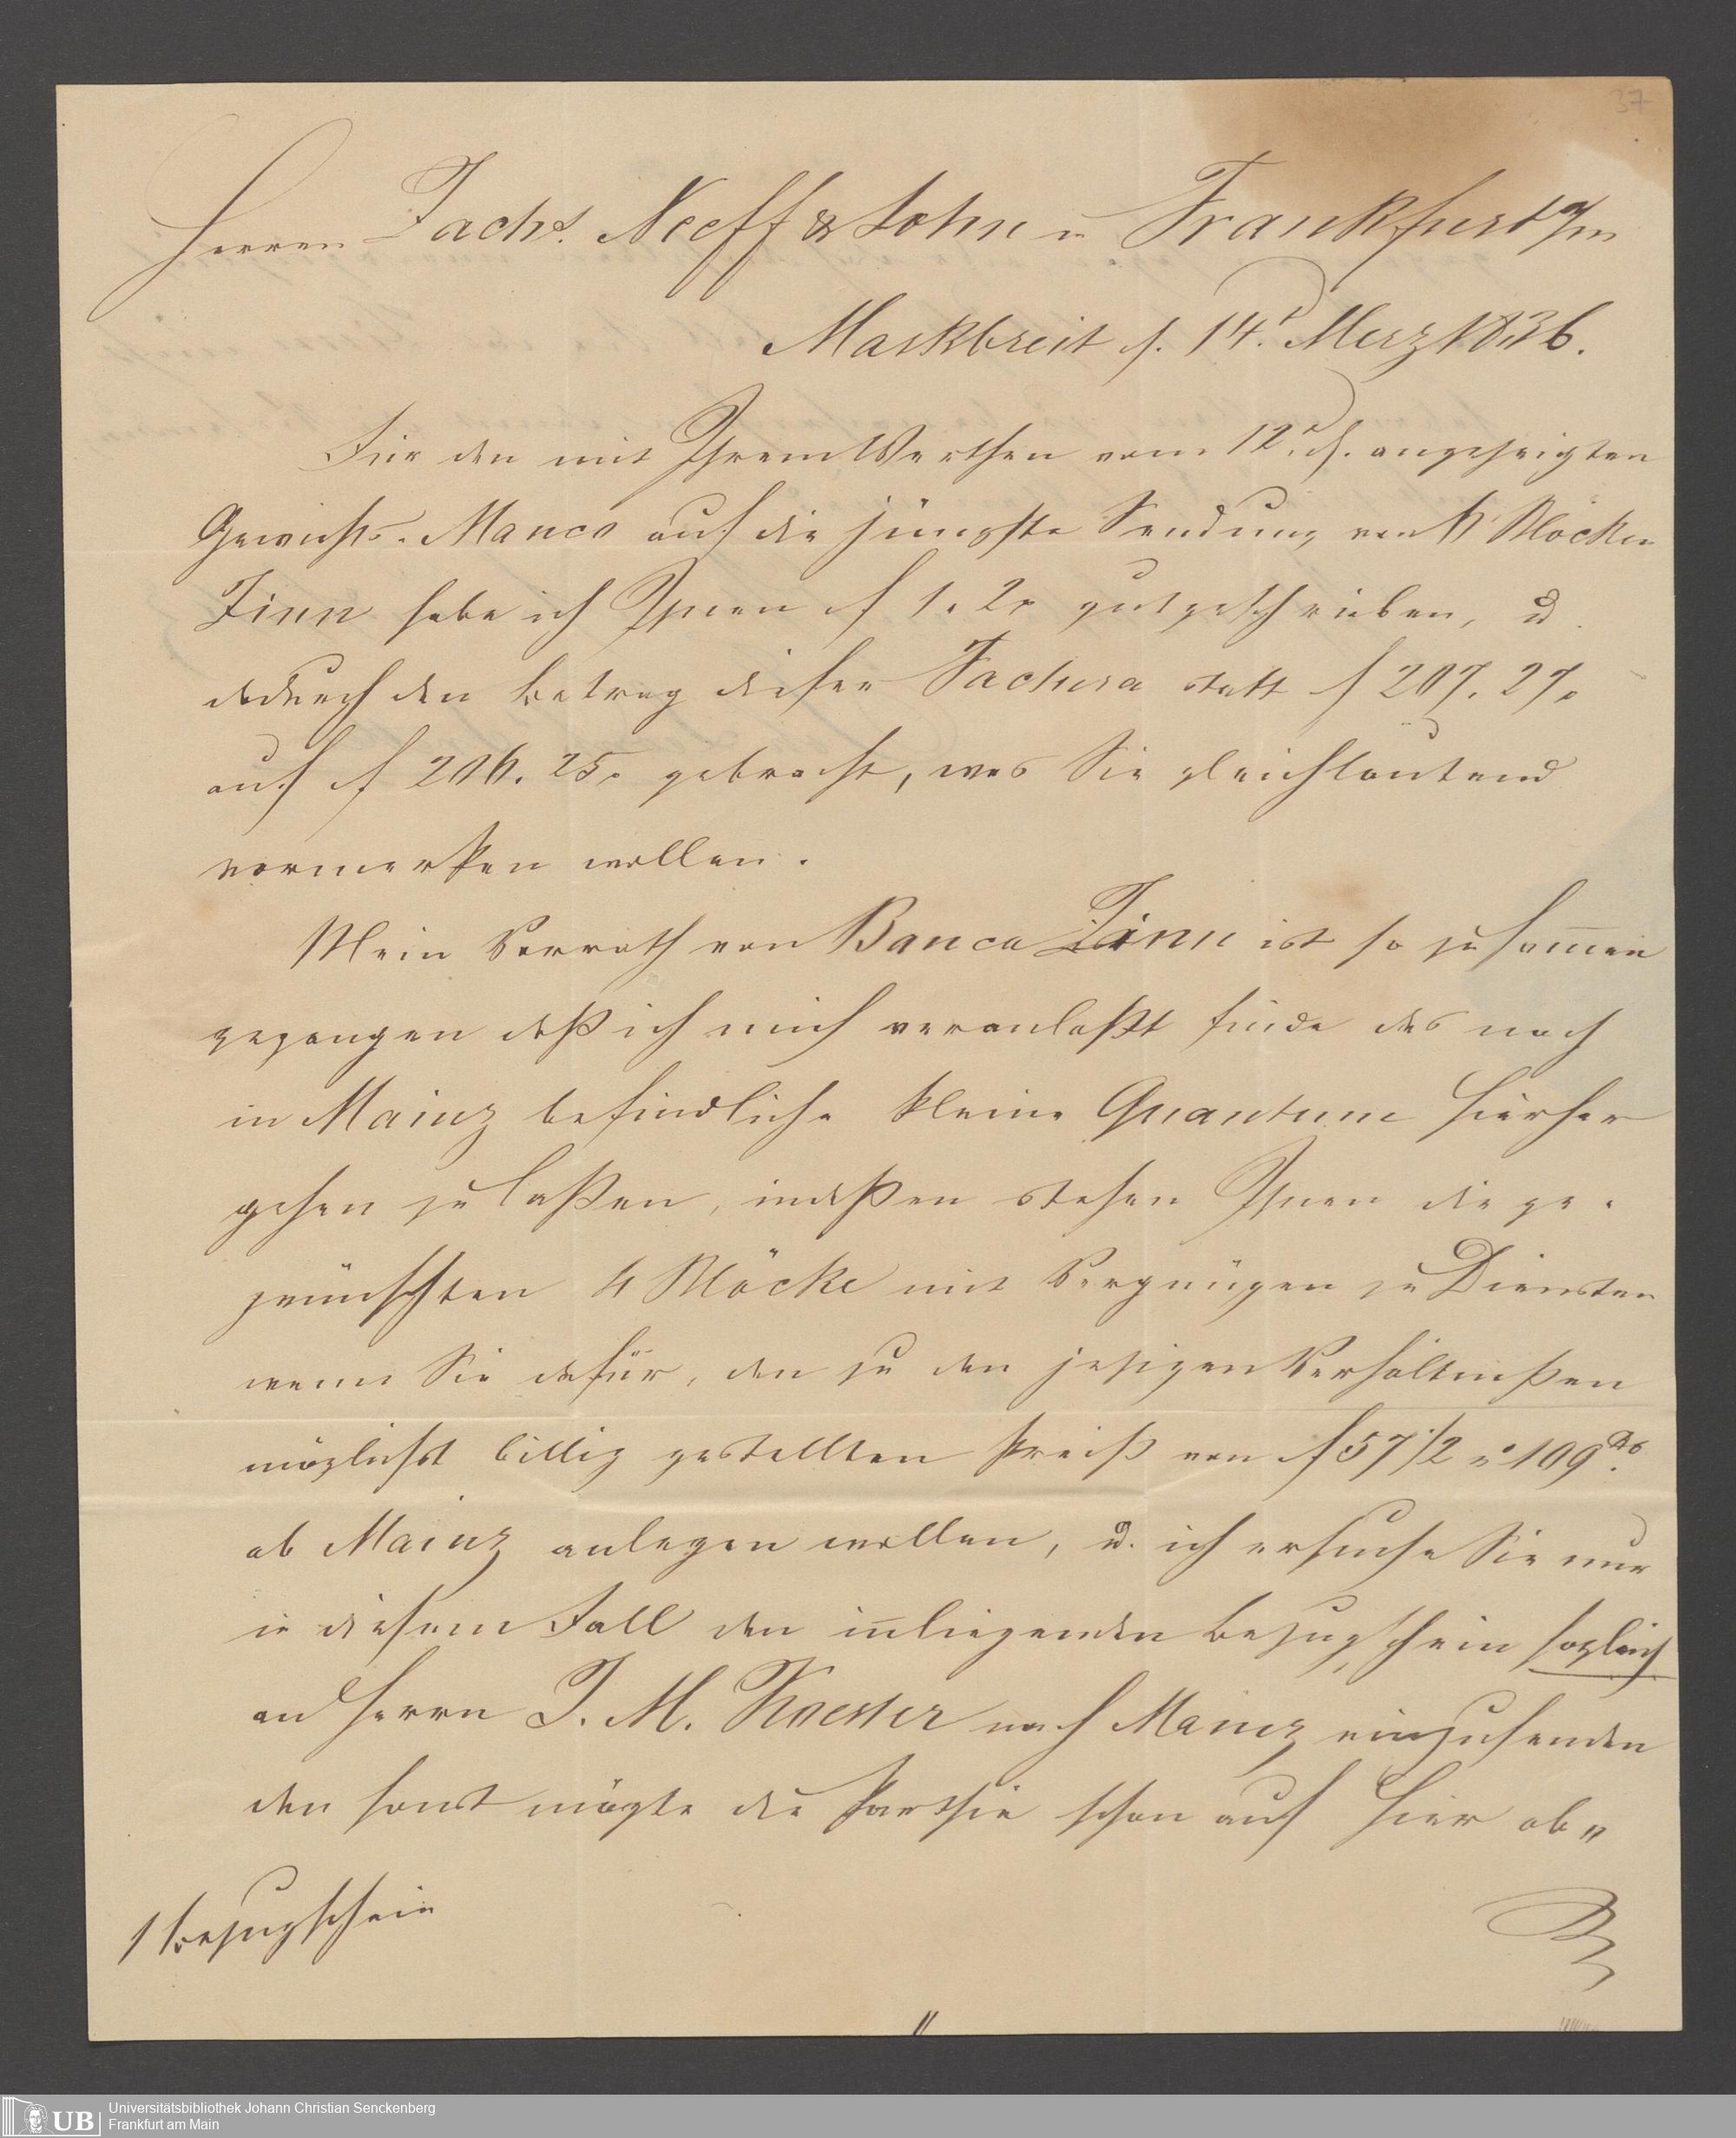 37
Herren Zach.s Neeff & Sohn in Frankfurt a/m
Marktbreit d. 14.t Merz 1836.
Für den mit Ihrem Werthen vom 12.t d. angezeigten
Gewichts-Manco auf die jüngste Sendung von 6 Blöcken
Zinn habe ich Ihnen f 1. 2. gutgeschrieben, u
dadurch den Betrag dieser Factura statt f 207. 27.
auf f 206. 25. gebracht, was Sie gleichlautend
vormerken wollen.
Mein Vorrath von Banca Zinn ist so zusam̅en
gegangen daß ich mich veranlaßt finde das noch
in Mainz befindliche kleine Quantum hierher
gehen zu laßen, indeßen stehen Ihnen die ge-
wünschten 4 Blöcke mit Vergnügen zu Diensten
wenn Sie dafür, den zu den jetzigen Verhältnißen
möglichst billig gestellten Preiß von f 57 1/2 109
ab Mainz anlegen wollen, u. ich ersuche Sie nur
in diesem Fall den in̅liegenden Bezugschein sogleich
an Herrn J. M. Koester nach Mainz einzusenden
den sonst mögte die Parthie schon auf hier ab"
1 Bezugschein
UB
Universitätsbibliothek Johann Christian Senckenberg
Frankfurt am Main